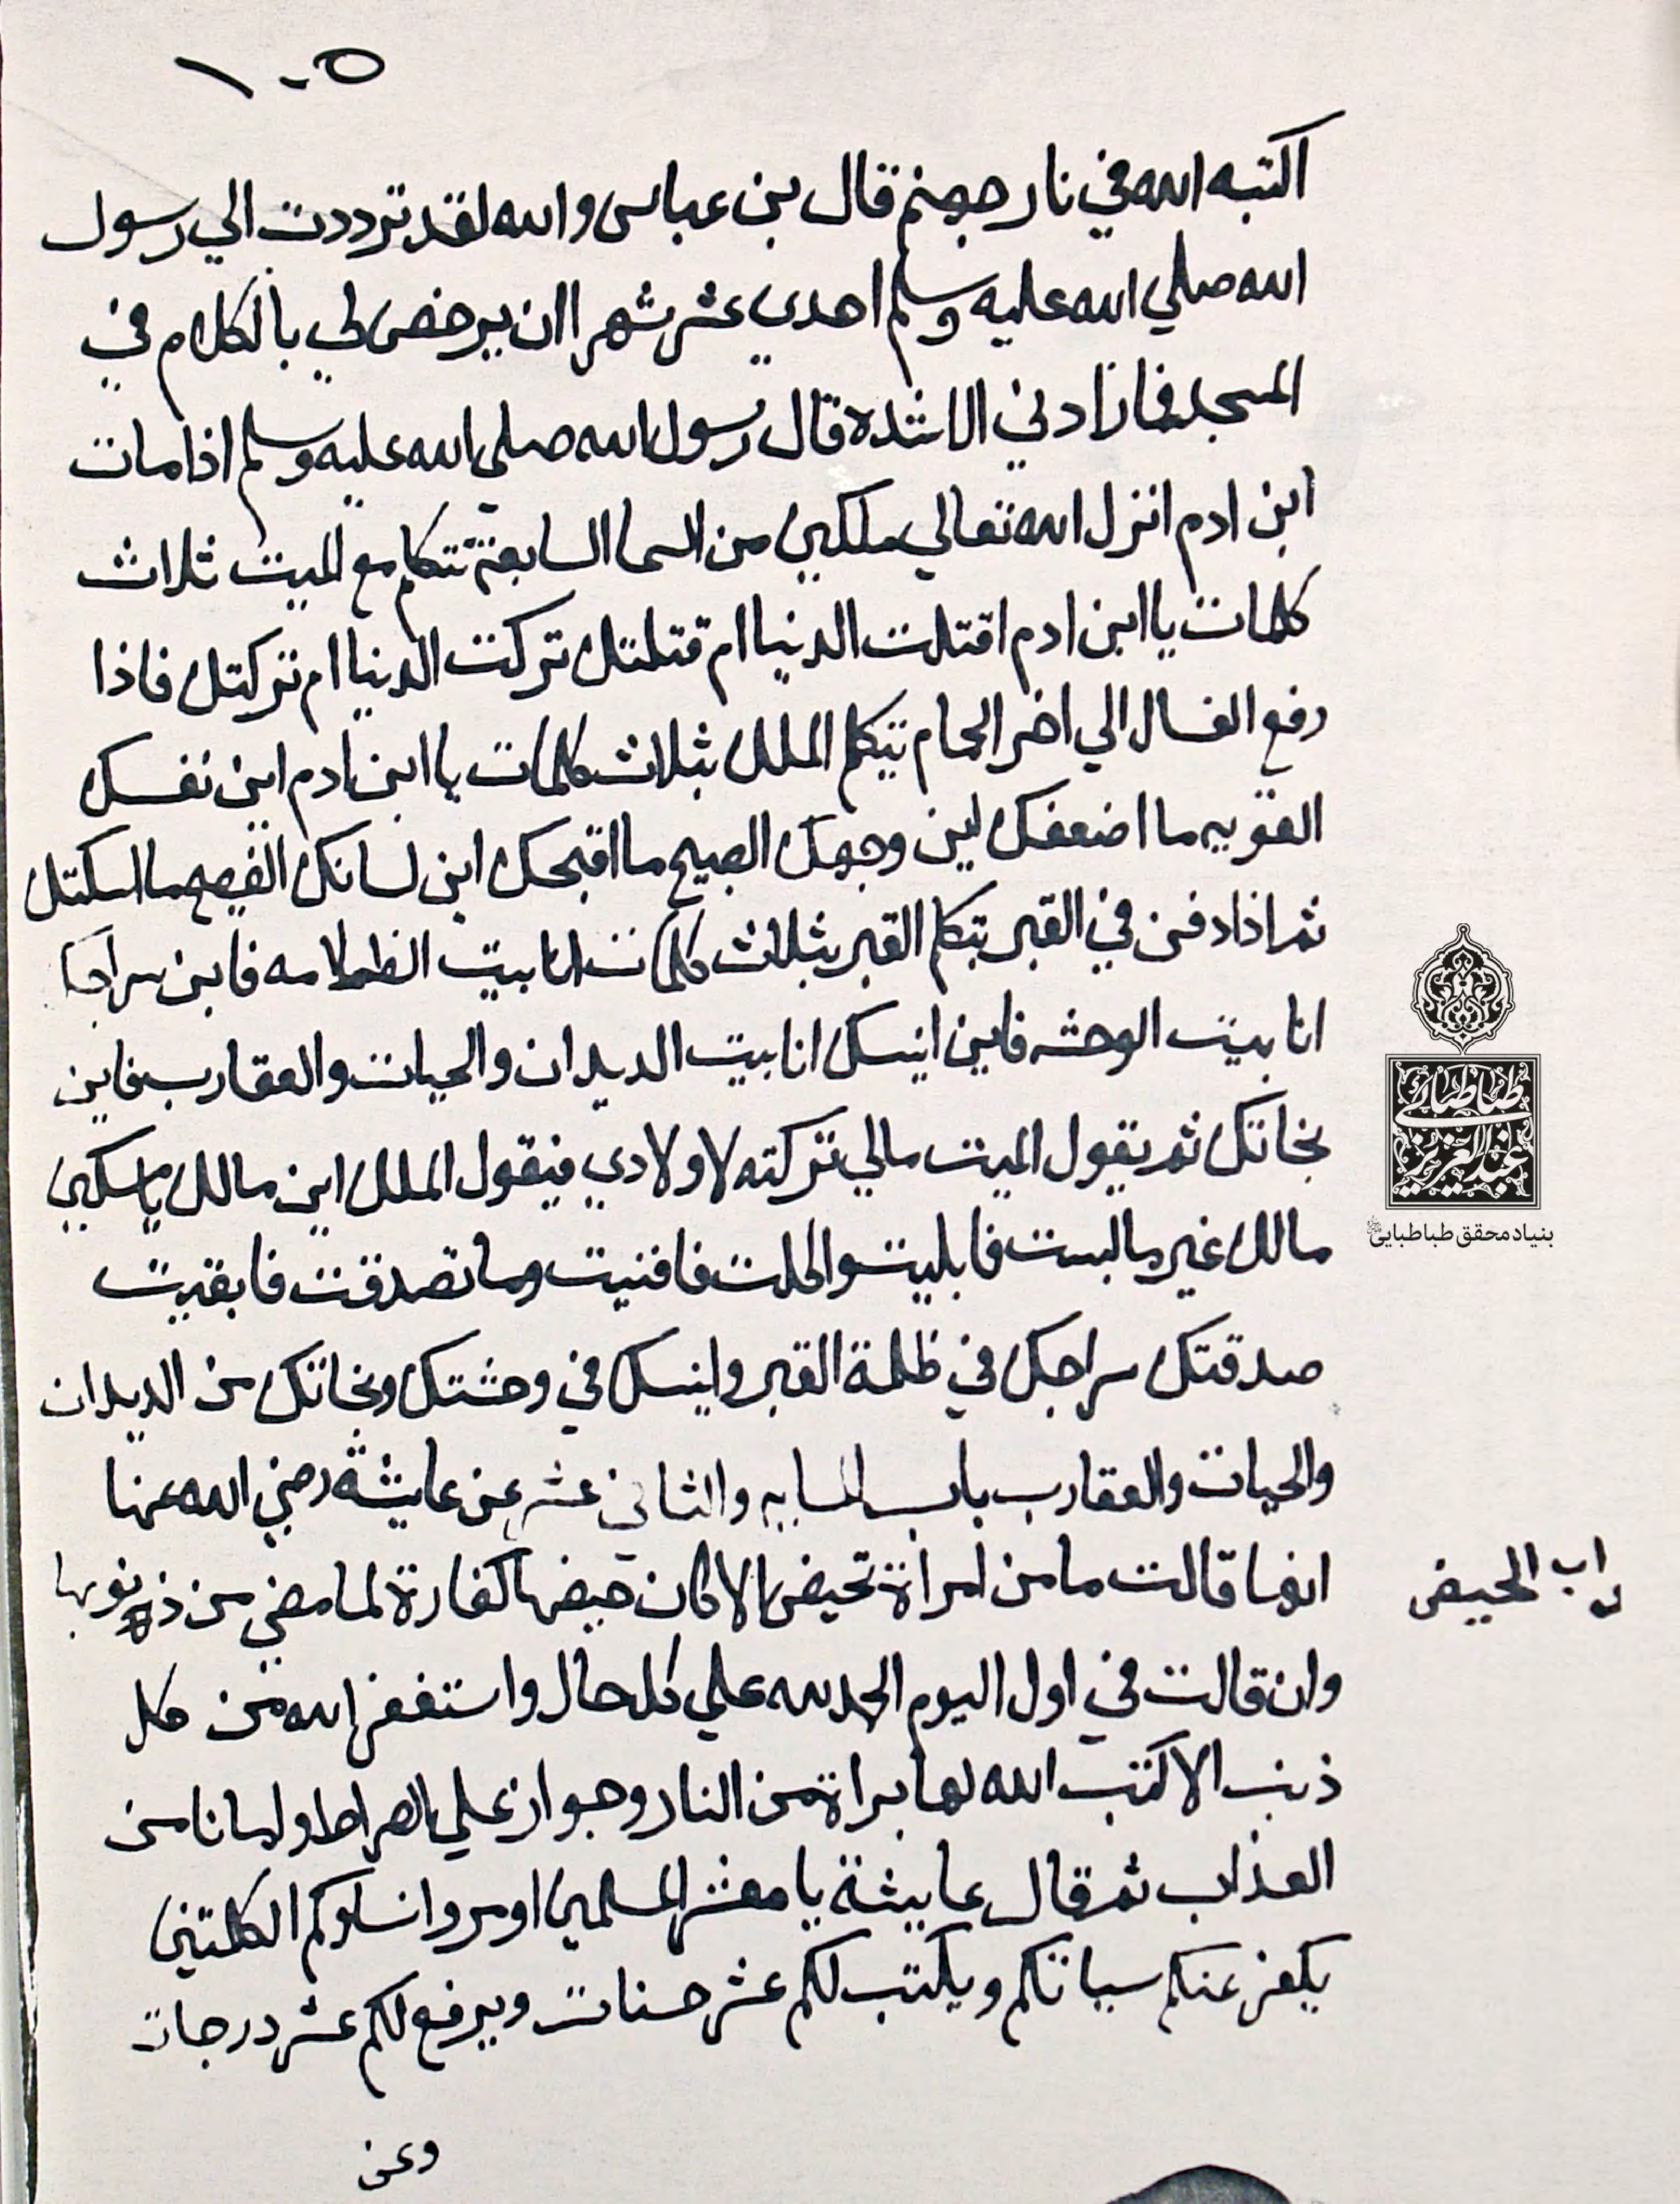 ١٠٥
اكتبه الله في نار جهنم قال بن عباس والله لقد ترددت الي رسول
الله صلي الله عليه وسلم احدي عشر شهرا ان يرخص لي بالكلام في
المسجد فما زادني الا شدة قال رسول الله صلي الله عليه وسلم اذا مات
ابن ادم انزل الله تعالي ملكين من السما السابعة تتكلم مع الميت ثلاث
كلمات يا ابن ادم اقتلت الدنيا ام قتلتك تركت الدنيا ام تركتك فاذا
رفع الغسال الي اخر الحمام تتكلم الملك بثلاث كلمات يا ابن ادم اين نفسك
القويه ما اضعفك اين وجهك الصبيح ما اقبحك اين لسانك الفصيح ما اسكتك
ثم اذا دفن في القبر تتكلم القبر بثلاث كلمات انا بيت الظلامه فاين سراجك
انا بيت الوحشه فاين انيسك انا بيت الديدان والحيات والعقارب فاين
نجاتك ثم يقول الميت مالي تركته لاولادي فيقول الملك اين مالك يا مسكين
مالك غير ما لبست فابليت واكلت فافنيت وما تصدقت فابقيت
صدقتك سراجك في ظلمة القبر وانيسك في وحشتك ونجاتك من الديدان
والحيات والعقارب باب المايه والثاني عشر عن عايشة رضي الله عنها
انها قالت ما من امراة تحيض الا كان حيضها كفارة لما مضي من ذنوبها
باب الحيض
وان قالت في اول اليوم الحمد لله علي كل حال واستغفر الله من كل
ذنب الا كتب الله لها براة من النار وجواز علي الصراط وامانا من
العذاب ثم قال عايشة يا معشر المسلمين اومروا نساوكم الكلمتين
يكفر عنكم سياتكم ويكتب لكم عشر حسنات ويرفع لكم عشر درجات
وعن
طباطبائی
عبدالعزیز
بنیاد محقق طباطبایی